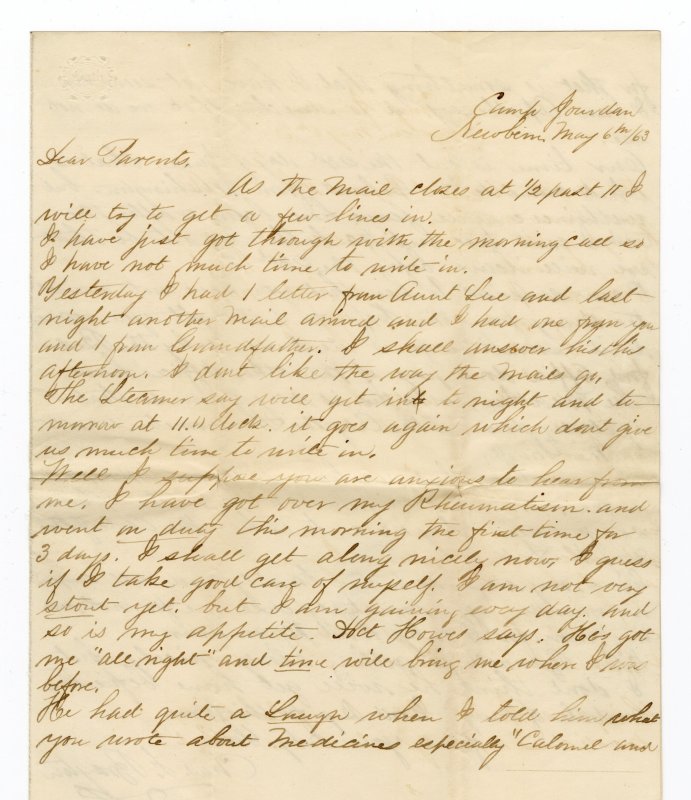 Camp Jourdan
Newbern, May 6th/63
Dear Parents,
As the Mail closes at 1/2 past 11 I
will try to get a few lines in.
I have just got through with the morning call so
I have not much time to write in.
Yesterday I had 1 letter from Aunt Sue and last
night another Mail arrived and I had one from you
and 1 from Grandfather. I shall answer his this
afternoon. I dont like the way the Mails go,
The Steamer say will get in to night and to-
morrow at 11.O Clock. it goes again which dont give
us much time to write in.
Well I suppose you are anxious to hear from
me. I have got over my Rheumatism. and
went on duty this morning the first time for
3 days. I shall get along nicely now, I guess
if I take good care of myself. I am not very
stout yet. but I am gaining every day. and
so is my appetite. Howes says. He's got
me "all right" and time will bring me where I was
before.
He had quite a Laugh when I told him what
you wrote about Medicines especially "Calomel and